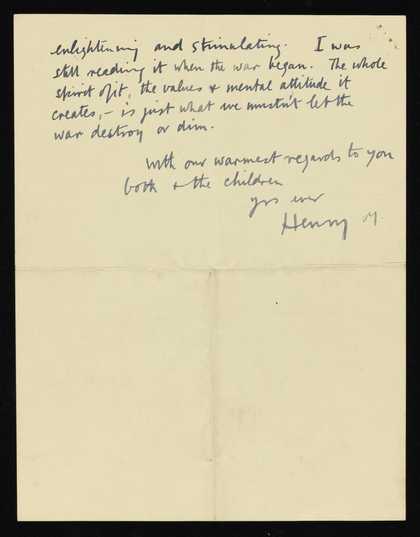 enlightening and stimulating. I was
still reading it when the war began. The whole
spirit of it, the values & mental attitude it
creates, – is just what we mustn't let the
war destroy or dim.
With our warmest regards to you
both & the children
yrs ever
Henry M.